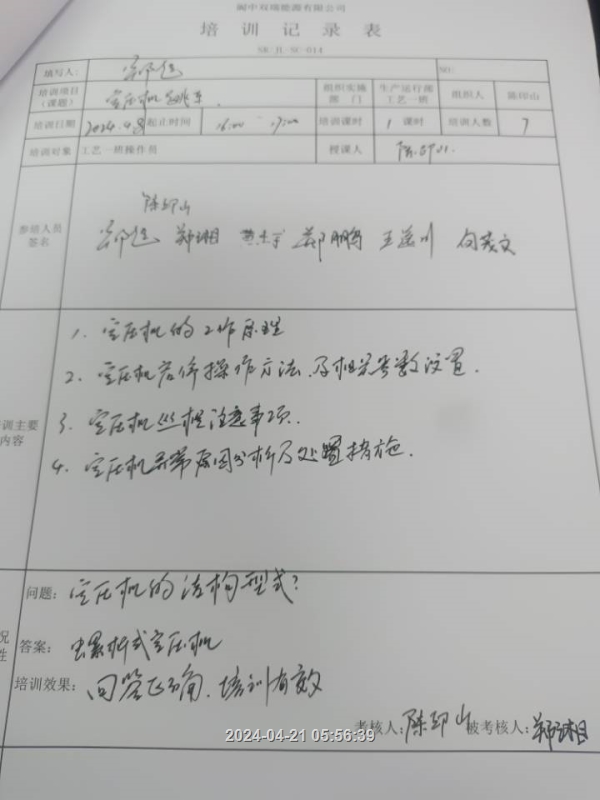 阆中双瑞能源有限公司
培 训 记 录 表
SR/JL-SC-014
填写人: NO:
培训项目（课题） 空压机 组织实施部 门 生产运行部工艺一班 组织人 陈印山
培训日期 2024.4.8 起止时间 16:00 - 17:00 培训课时 1 课时 培训人数 7
培训对象 工艺一班操作员 授课人 陈印山
参培人员签名
陈印山
郑湘 郑鹏 王益川 勾茂文
培训主要内容
1. 空压机的工作原理
2. 空压机启停操作方法及相关参数设置.
3. 空压机巡检注意事项.
4. 空压机异常原因分析及处置措施.
问题: 空压机的结构型式?
答案: 螺杆式空压机
培训效果: 回答正确、培训有效
考核人: 陈印山 被考核人: 郑湘
2024-04-21 05:56:39